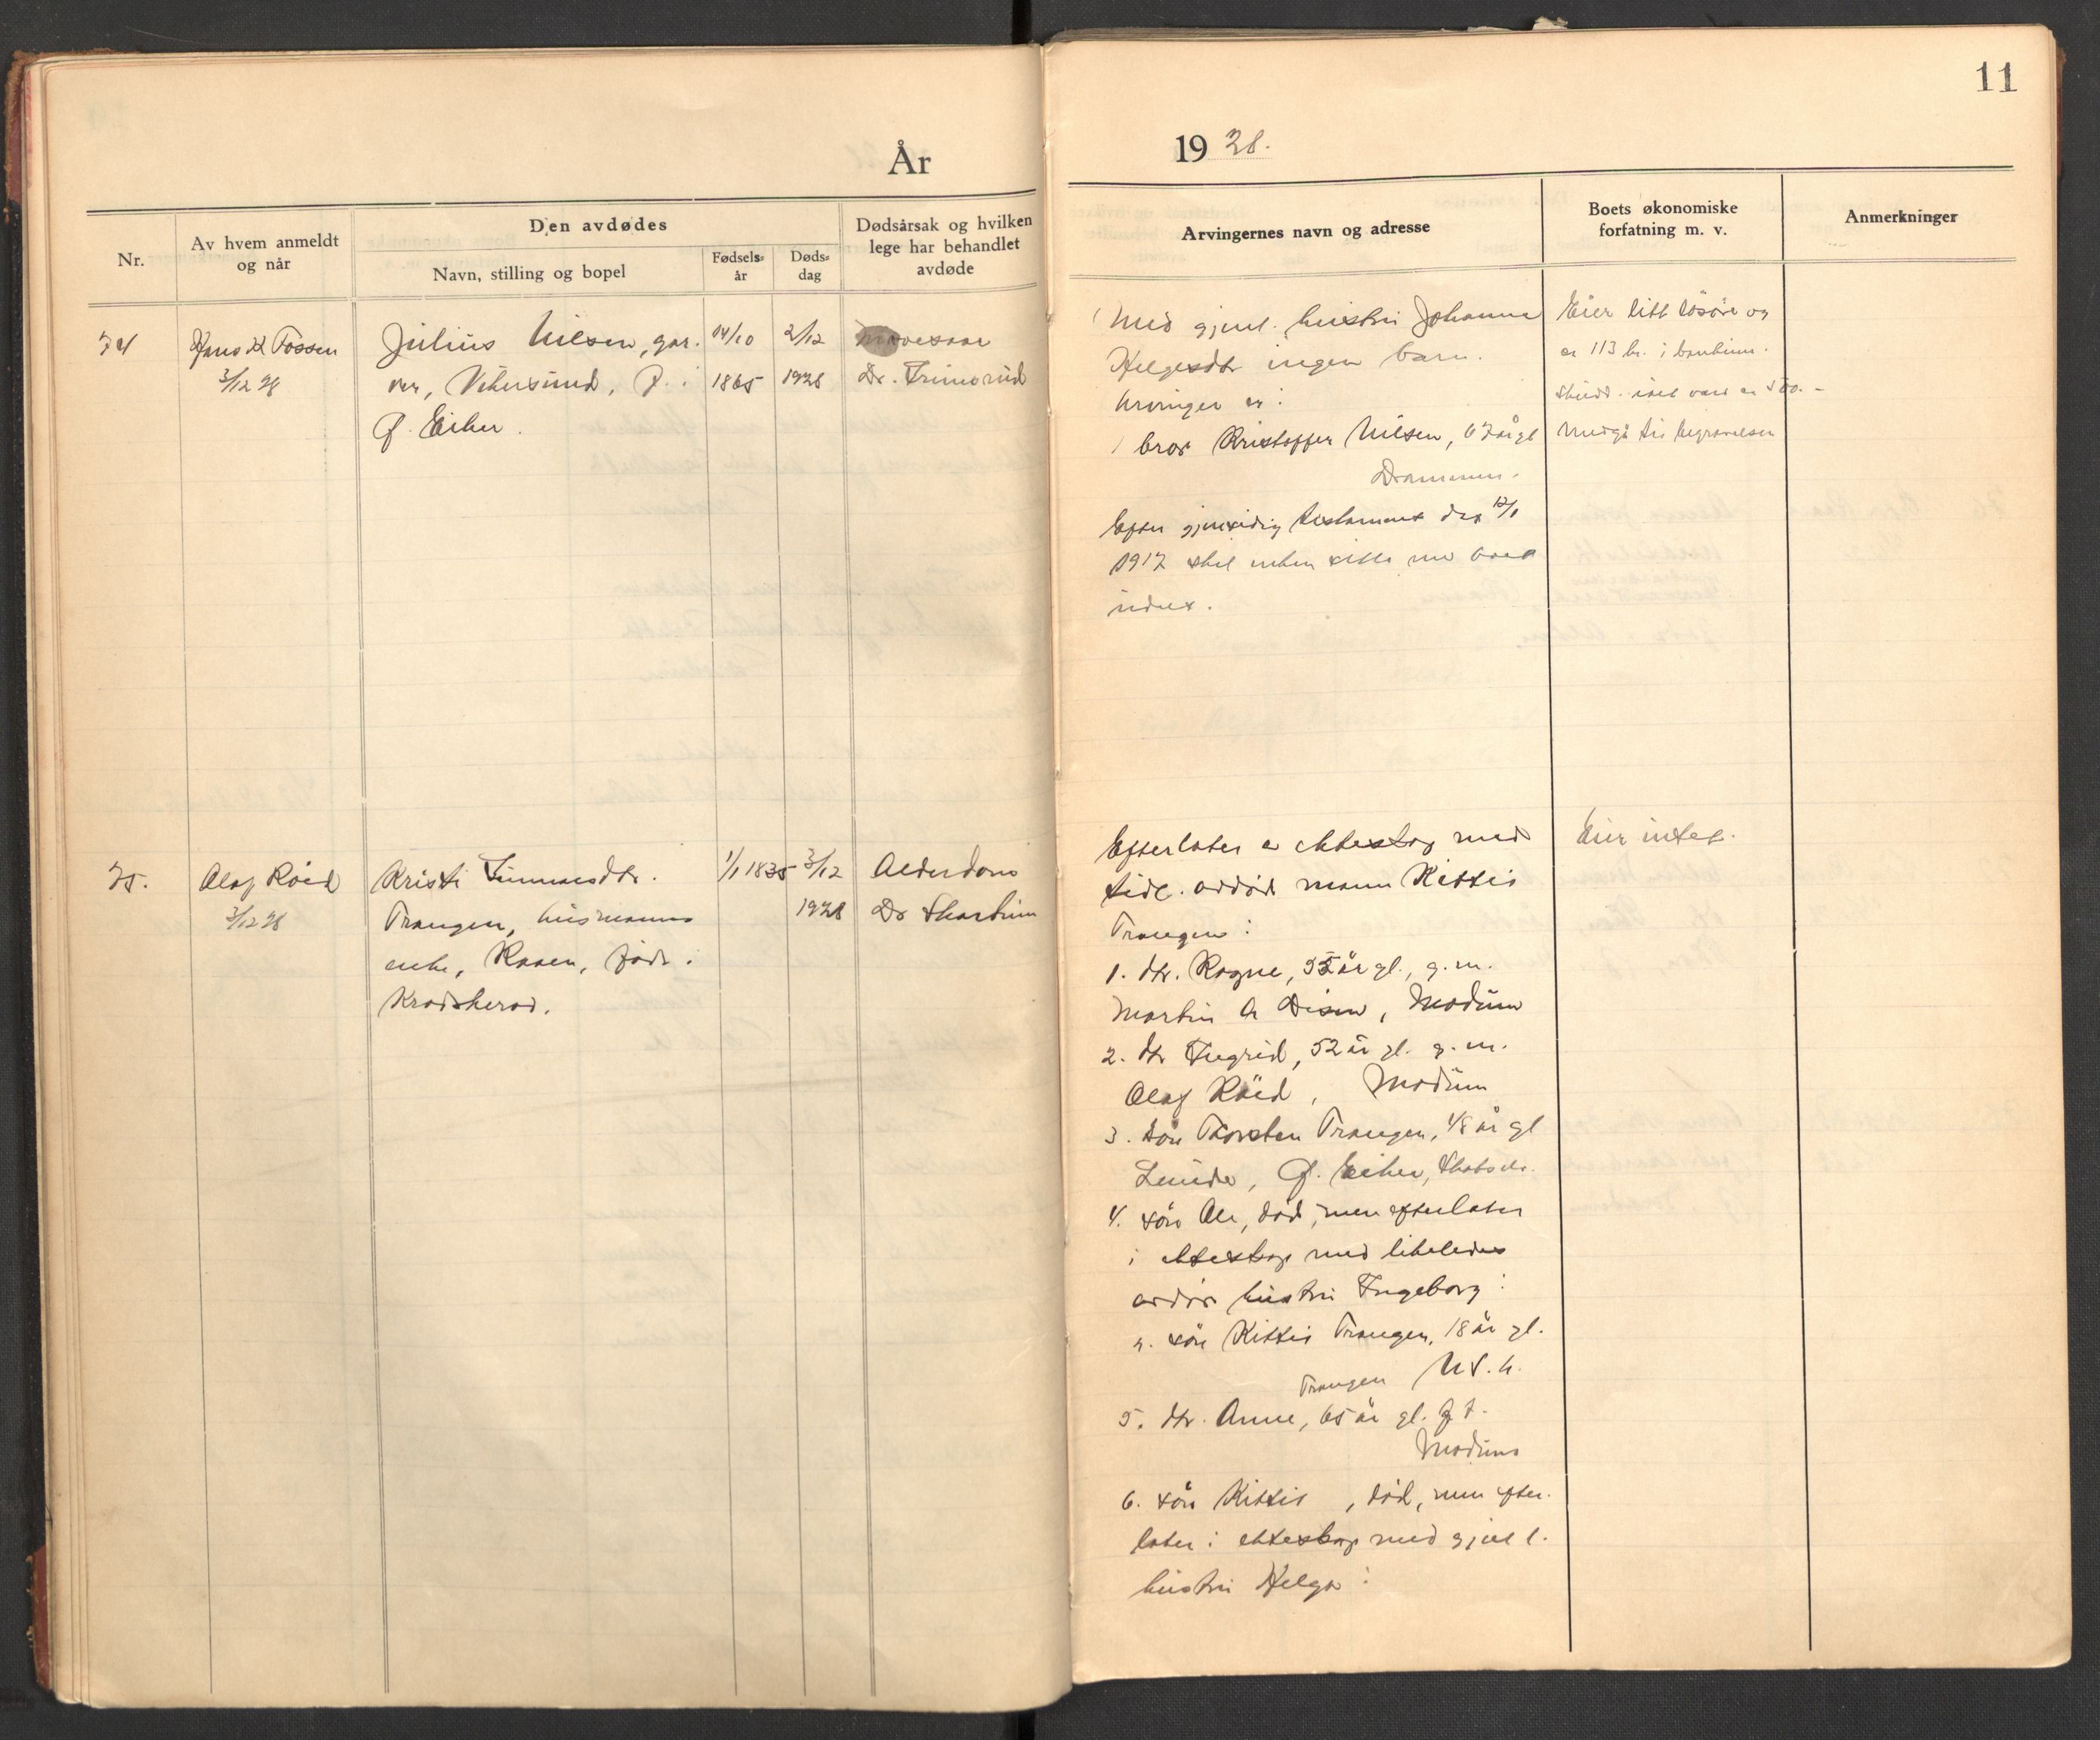 11
År
19 28.
Nr.
Av hvem anmeldt
og når
Den avdødes
Navn, stilling og bopel
Fødsels-
år
Døds-
dag
Dødsårsak og hvilken
lege har behandlet
avdøde
Arvingernes navn og adresse
Boets økonomiske
forfatning m. v.
Anmerkninger
74
Hans K Fossen
3/12 28
Julius Nilsen, gar-
ver, Vikersund, f. i
Ø. Eiker.
14/10
1865
2/12
1928
Mavesaar
Dr.
Med gjenl. hustru Johanne
Helgesdtr ingen barn.
Arvinger er:
1 bror Kristoffer Nilsen, 67 år gl
Drammen.
Efter gjensidig testament dag 12/1
1917 skal enken sitte med boet
uskiftet
Eier litt løsøre og
er 113 kr. i bankinn-
skudd
Medgå til begravelsen
75.
Olaf Røed
3/12 28
Kristi
Trangen, husmanns
enke, født i
Krødsherad.
1/1 1835
3/12
1928
Alderdom
Dr Skartum
Efterlater av ekteskap med
tidl. avdød mann Kittil
Trangen:
1. dtr. Ragne, år gl., g.m.
Martin A Disen, Modum
2. dtr Ingrid, 52 år gl. g.m.
Olaf Røed, Modum
3. søn Thorsten Trangen, 48 år gl
Lunde, Ø. Eiker, Skotselv.
4. søn Ole, død, men efterlater
i ekteskap med likeledes
avdød hustru Ingeborg:
a. søn Kittil Trangen, 18 år gl.
Trangen
5. dtr. Anne, 65 år gl.
Modum
6. søn Kittil, død, men efter-
later i ekteskap med gjenl.
hustru Helga:
Eier intet.